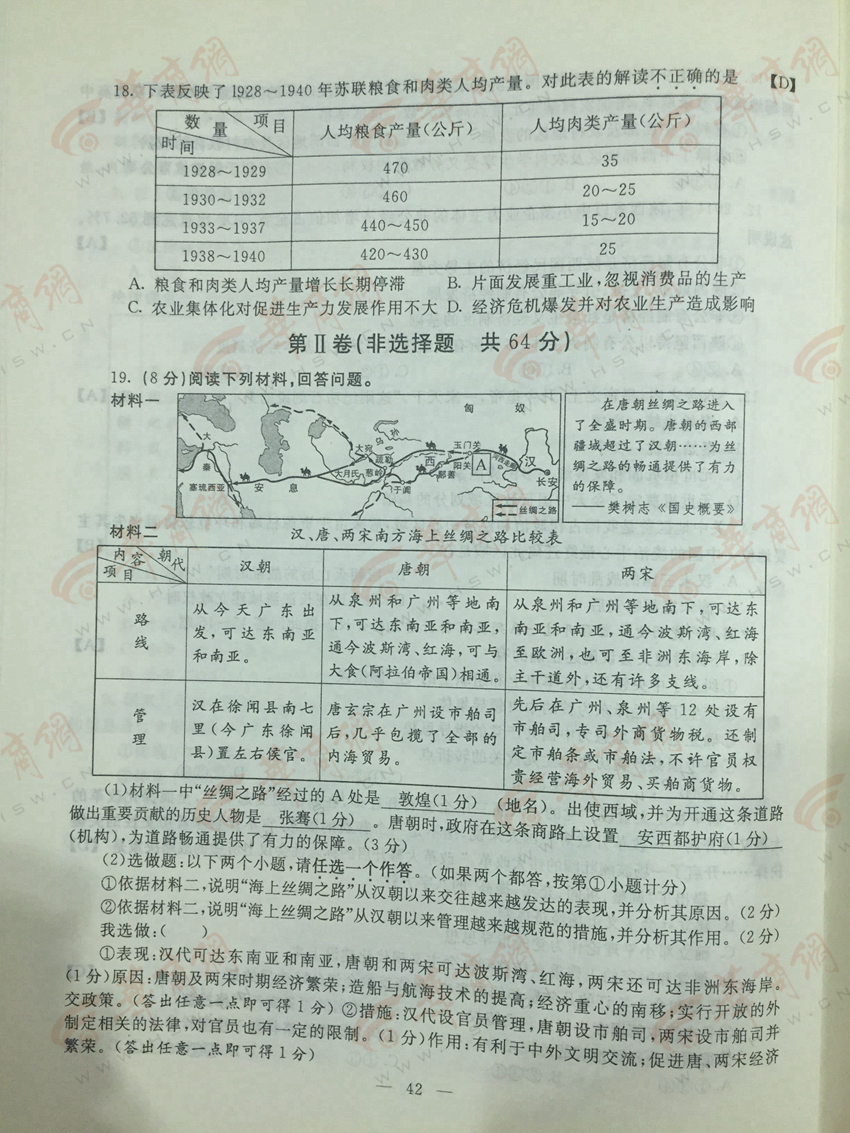 18. 下表反映了1928～1940年苏联粮食和肉类人均产量。对此表的解读不正确的是 【D】
数量 项目 时间 人均粮食产量(公斤) 人均肉类产量(公斤)
1928～1929 470 35
1930～1932 460 20～25
1933～1937 440～450 15～20
1938～1940 420～430 25
A. 粮食和肉类人均产量增长长期停滞 B. 片面发展重工业,忽视消费品的生产
C. 农业集体化对促进生产力发展作用不大 D. 经济危机爆发并对农业生产造成影响
第Ⅱ卷(非选择题 共64分)
19. (8分)阅读下列材料,回答问题。
材料一
匈奴
大秦
塞琉西亚
安息
大宛
大月氏
疏勒
葱岭
于阗
西
鄯善
玉门关
阳关
A
河西走廊
汉
长安
丝绸之路
在唐朝丝绸之路进入
了全盛时期。唐朝的西部
疆域超过了汉朝……为丝
绸之路的畅通提供了有力
的保障。
——樊树志《国史概要》
材料二
汉、唐、两宋南方海上丝绸之路比较表
内容 朝代 项目 汉朝 唐朝 两宋
路线
从今天广东出
发,可达东南亚
和南亚。
从泉州和广州等地南
下,可达东南亚和南亚,
通今波斯湾、红海,可与
大食(阿拉伯帝国)相通。
从泉州和广州等地南下,可达东
南亚和南亚,通今波斯湾、红海
至欧洲,也可至非洲东海岸,除
主干道外,还有许多支线。
管理
汉在徐闻县南七
里(今广东徐闻
县)置左右侯官。
唐玄宗在广州设市舶司
后,几乎包揽了全部的
内海贸易。
先后在广州、泉州等12处设有
市舶司,专司外商货物税。还制
定市舶条或市舶法,不许官员权
贵经营海外贸易、买舶商货物。
(1)材料一中“丝绸之路”经过的A处是 敦煌(1分) (地名)。出使西域,并为开通这条道路
做出重要贡献的历史人物是 张骞(1分) 。唐朝时,政府在这条商路上设置 安西都护府(1分)
(机构),为道路畅通提供了有力的保障。(3分)
(2)选做题:以下两个小题,请任选一个作答。(如果两个都答,按第①小题计分)
①依据材料二,说明“海上丝绸之路”从汉朝以来交往越来越发达的表现,并分析其原因。(2分)
②依据材料二,说明“海上丝绸之路”从汉朝以来管理越来越规范的措施,并分析其作用。(2分)
我选做:( )
①表现:汉代可达东南亚和南亚,唐朝和两宋可达波斯湾、红海,两宋还可达非洲东海岸。
(1分)原因:唐朝及两宋时期经济繁荣;造船与航海技术的提高;经济重心的南移;实行开放的外
交政策。(答出任意一点即可得1分)②措施:汉代设官员管理,唐朝设市舶司,两宋设市舶司并
制定相关的法律,对官员也有一定的限制。(1分)作用:有利于中外文明交流;促进唐、两宋经济
繁荣。(答出任意一点即可得1分)
— 42 —
华商网
WWW.HSW.CN